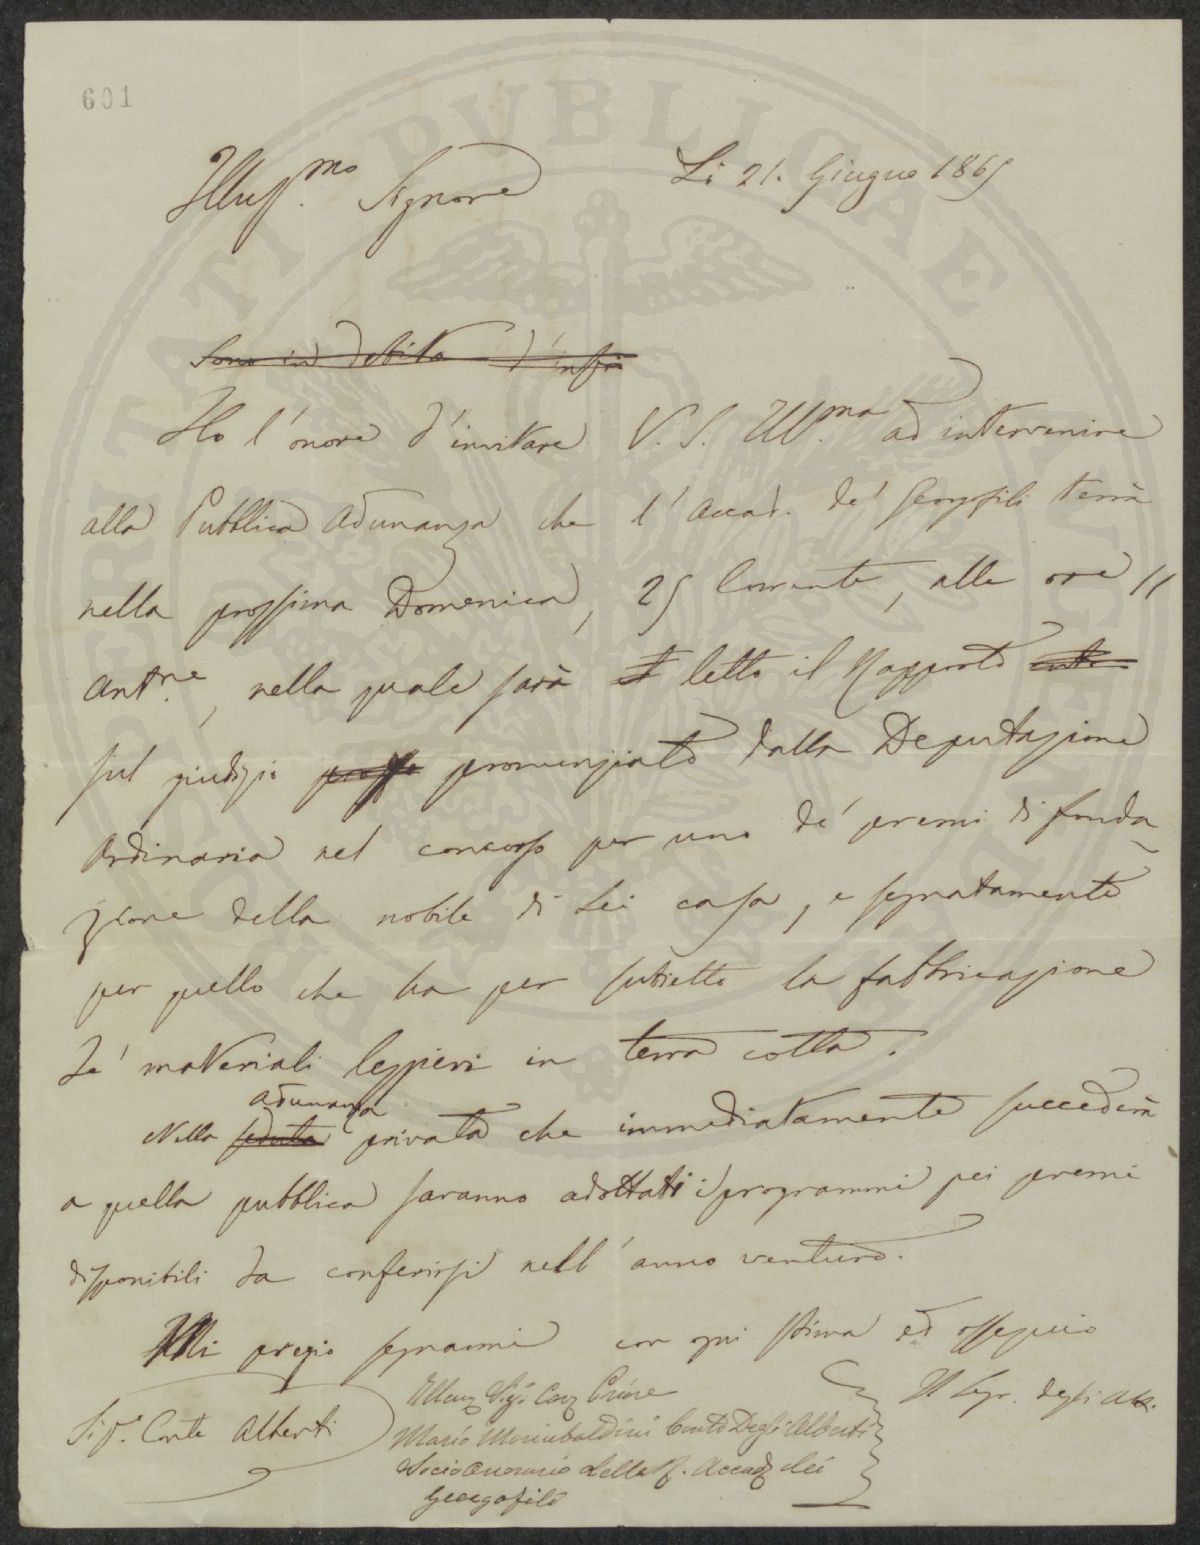 601
Illuss.mo Signore
Li 21. Giugno 1865
Sono in debito d'infor
Ho l'onore d'invitare V. S. Ill.ma ad intervenire
alla Pubblica adunanza che l'Accad. de' Georgofili terrà
nella prossima Domenica, 25 Corrente, alle ore 11
antne., nella quale sarà letto il Rapporto
sul giudizio pronunziato dalla Deputazione
Ordinaria nel concorso per uno de' premi di fonda
zione della nobile di Lei casa, e segnatamente
per quello che ha per subietto la fabbricazione
de' materiali leggieri in terra cotta.
adunanza
Nella seduta privata che immediatamente succederà
a quella pubblica saranno adottati i programmi pei premi
disponibili da conferirsi nell'anno venturo.
Mi pregio segnarmi con ogni stima ed ossequio
Il Segr. degli Att.
Sig.r Conte Alberti
Sigr Cav Priore
Mario Mori Ubaldini Conte Degli Alberti
Socio Onorario della R. Accad dei
Georgofili
PROSPERITATI PUBLICAE AUGENDAE